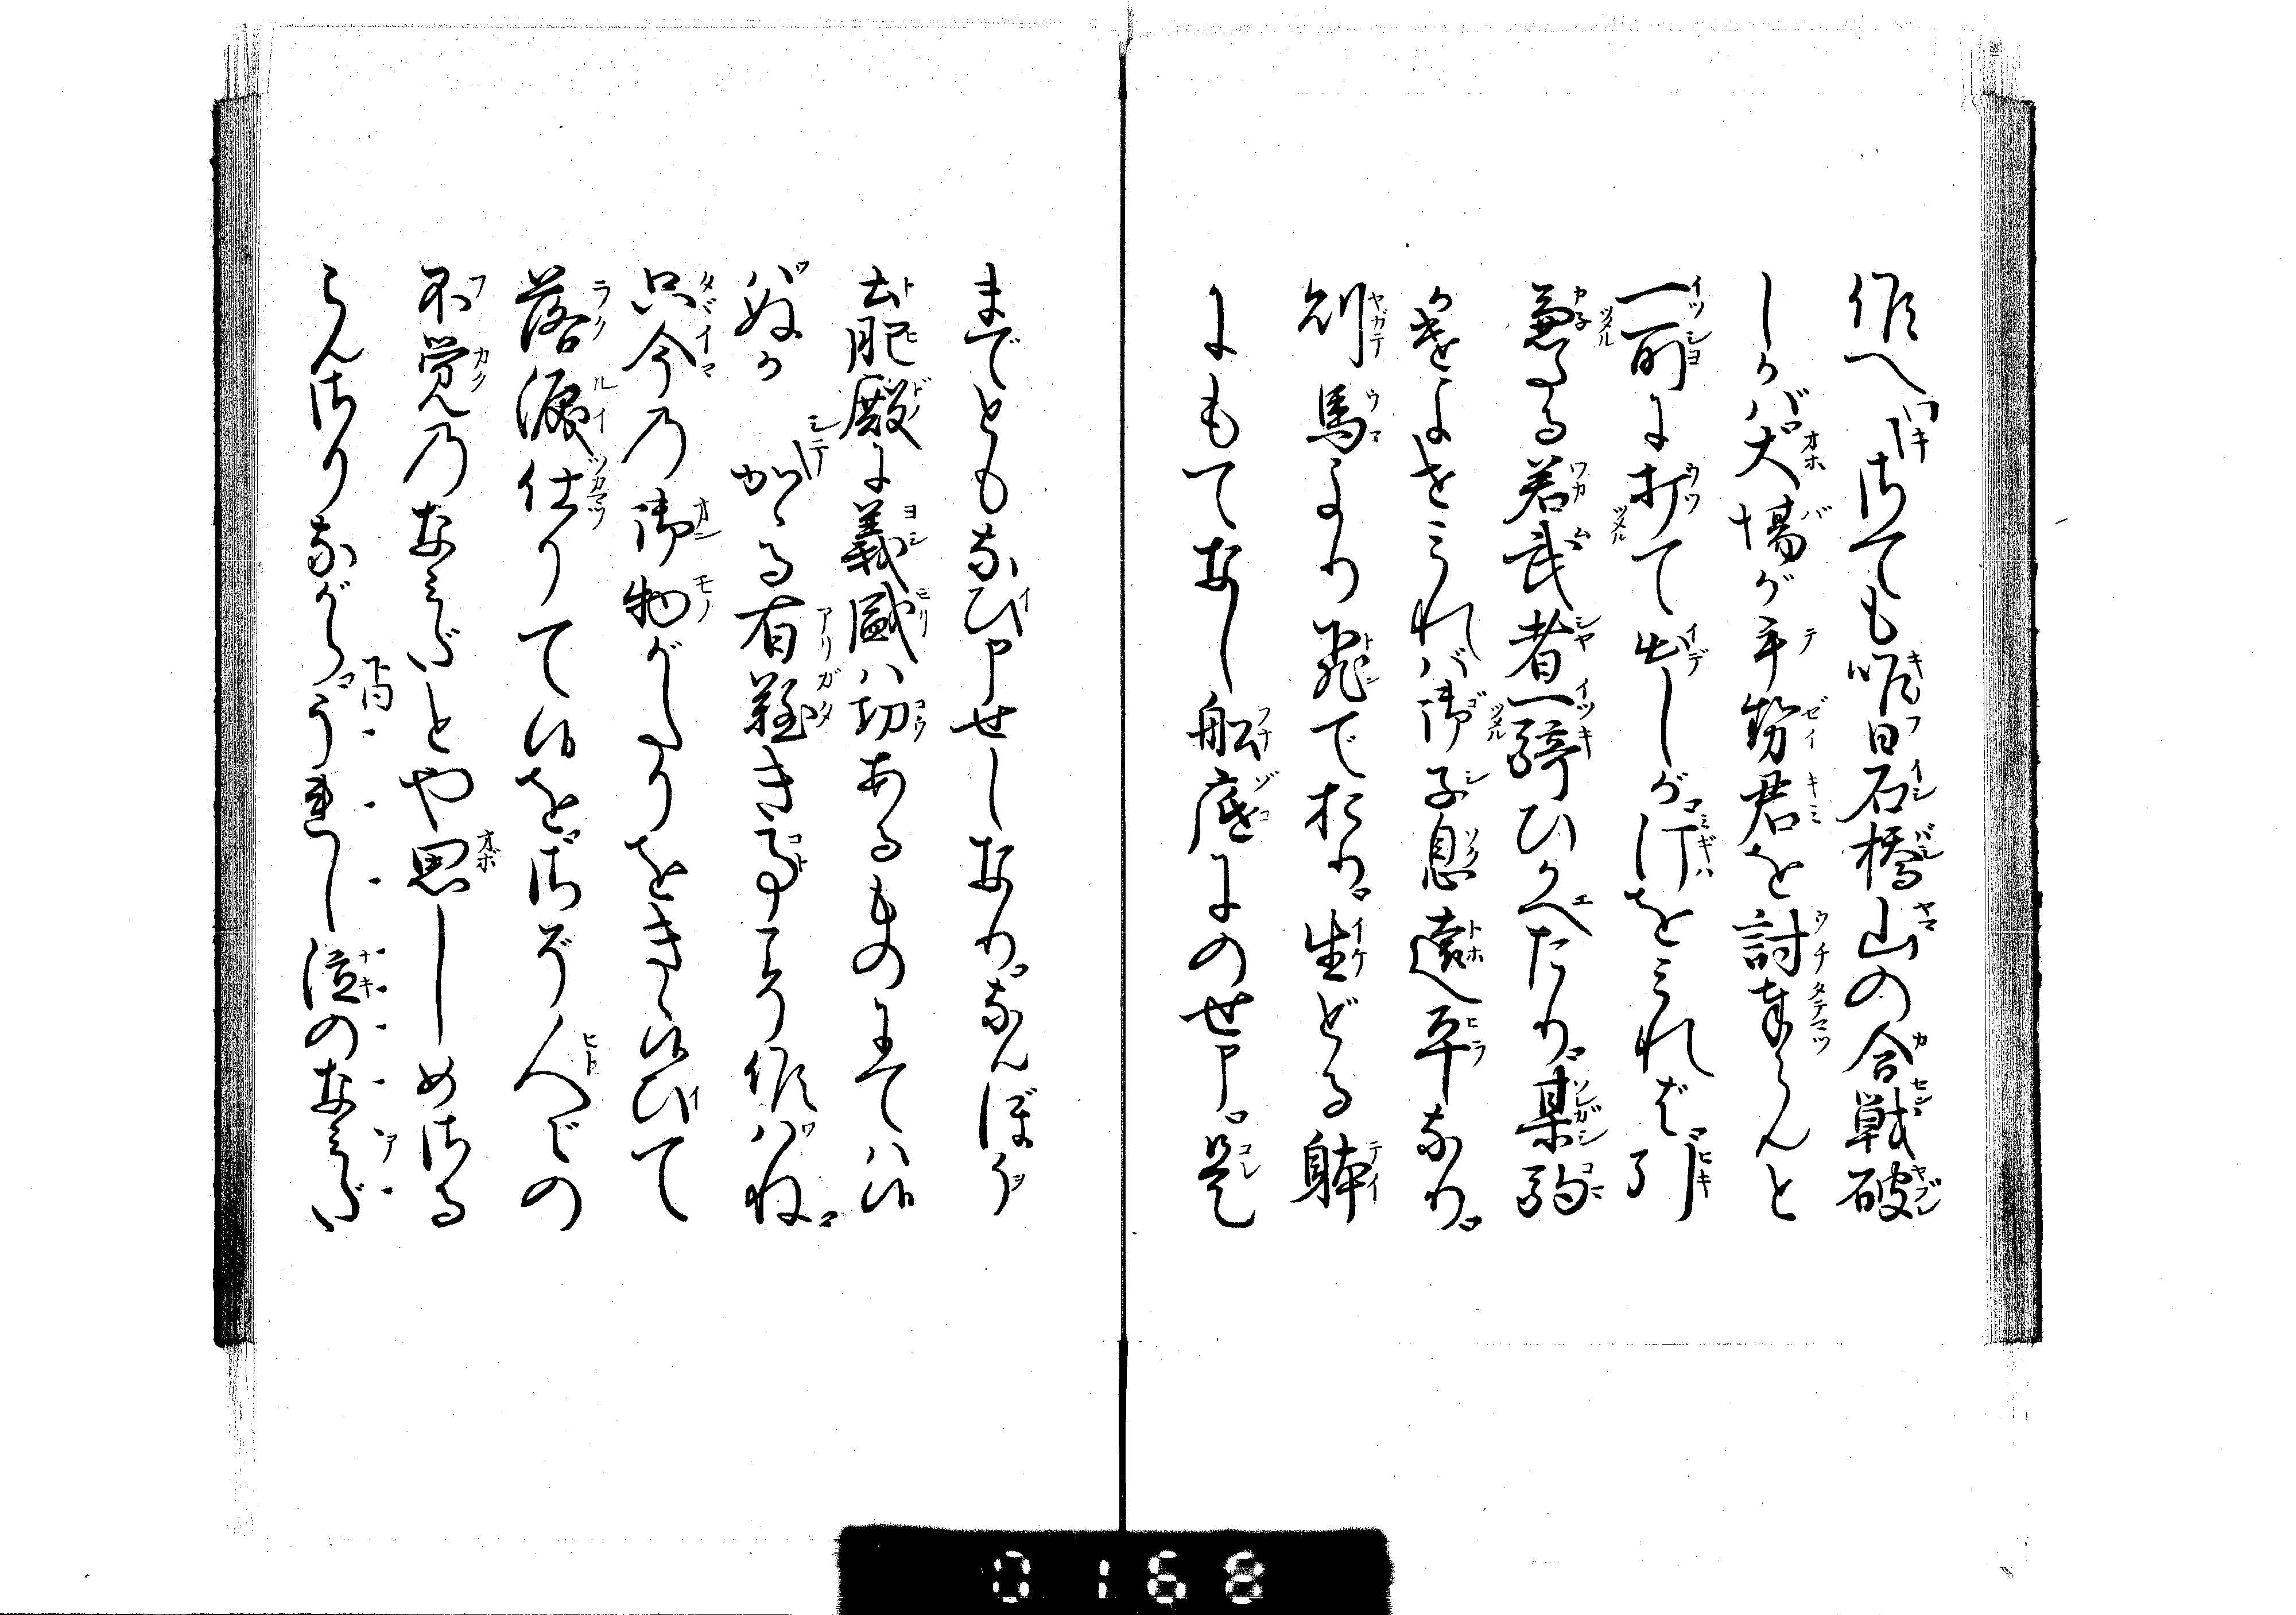 候へ扨ても昨日石橋山の合戦破
しかバ大場が手勢君を討奉らんと
一所に打て出しが汀をミれば引
兼たる若武者一騎ひかへたり某駒
かけよせミれバ御子息遠平なり
則馬より飛でおり生どる躰
にもてなし船底にのせ申是
までとも なひ申せしなりなんぼう
土肥殿に義盛ハ功あるものにて候
ハぬか かゝる有難き事こそ候ハね
只今の御物がたりをきゝ候ひて
落涙仕りて候をば扨ぞ人々の
不覚のなミだとや思しめさる
らんさりながらうれし泣のなミだ
0168